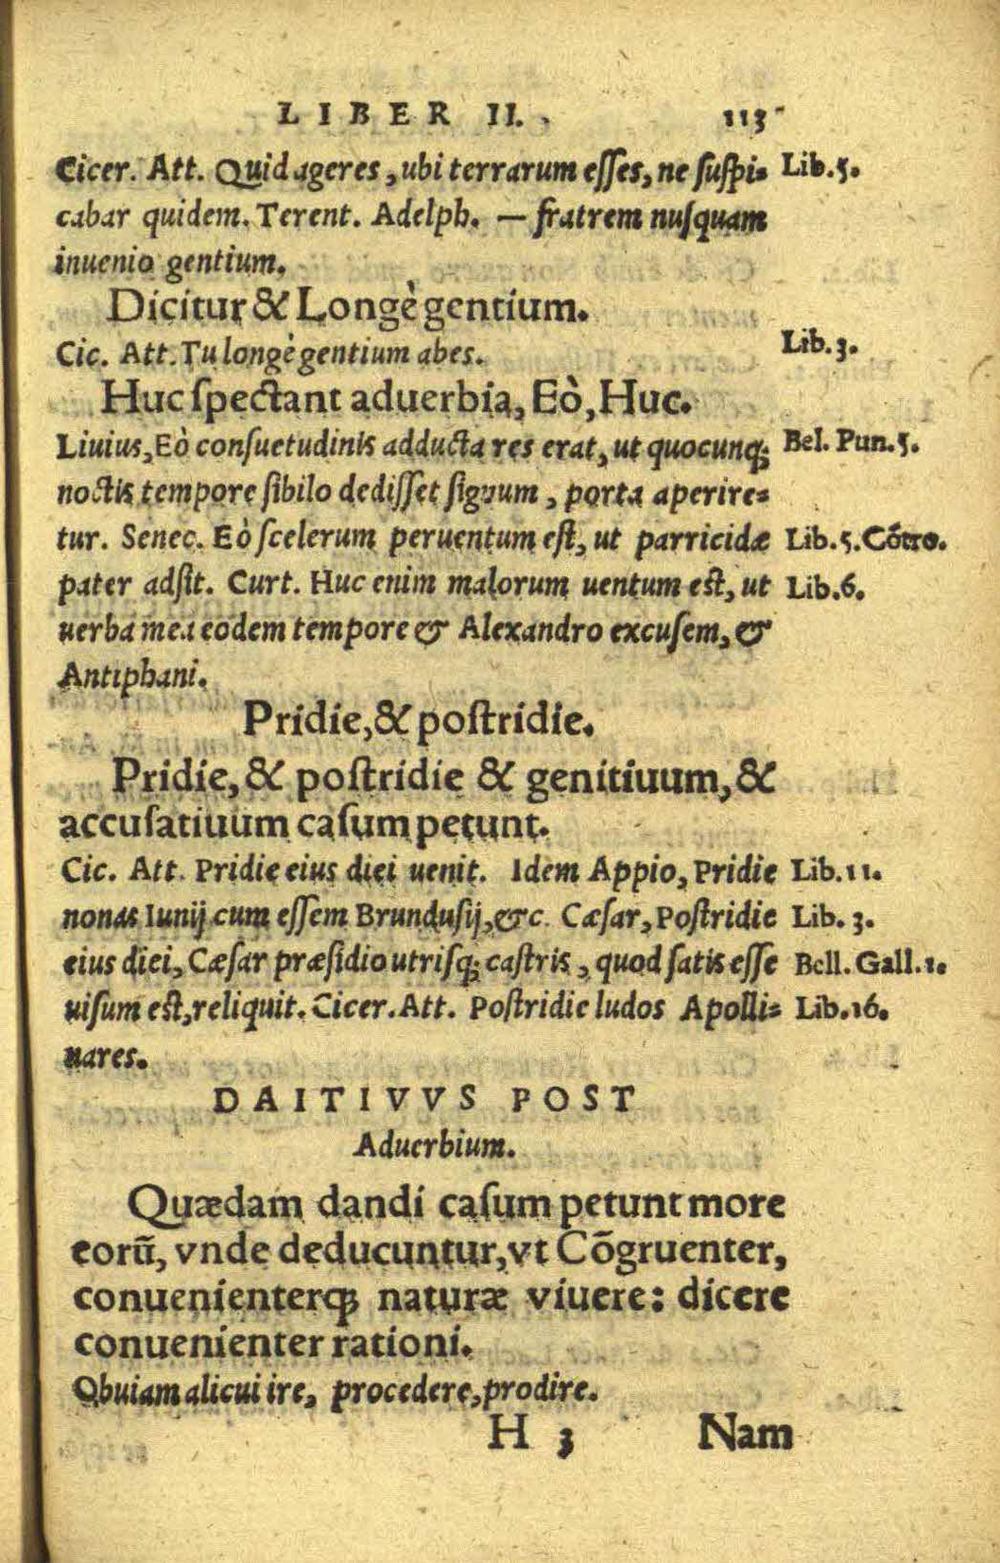 LIBER II. 113
Cicer. Att. Quid ageres, ubi terrarum eſſes, ne ſuſpi- Lib.5.
cabar quidem. Terent. Adelph. — fratrem nuſquam
inuenio gentium.
Dicitur & Longè gentium.
Cic. Att. Tu longè gentium abes. Lib.3.
Huc ſpectant aduerbia, Eò, Huc.
Liuius, Eò conſuetudinis adducta res erat, ut quocunq; Bel. Pun.5.
noctis tempore ſibilo dediſſet ſignum, porta aperire-
tur. Senec. Eò ſcelerum peruentum eſt, ut parricidæ Lib.5.Cõtro.
pater adſit. Curt. Huc enim malorum uentum eſt, ut Lib.6.
uerba mea eodem tempore & Alexandro excuſem, &
Antiphani.
Pridie, & poſtridie.
Pridie, & poſtridie & genitiuum, &
accuſatiuum caſum petunt.
Cic. Att. Pridie eius diei uenit. Idem Appio, Pridie Lib.11.
nonas Iunij cum eſſem Brunduſij, &c. Cæſar, Poſtridie Lib. 3.
eius diei, Cæſar præſidio utriſq; caſtris, quod ſatis eſſe Bell.Gall.1.
uiſum eſt, reliquit. Cicer. Att. Poſtridie ludos Apolli- Lib.16.
nares.
DAITIVVS POST
Aduerbium.
Quædam dandi caſum petunt more
eorũ, vnde deducuntur, vt Cõgruenter,
conuenienterq; naturæ viuere: dicere
conuenienter rationi.
Obuiam alicui ire, procedere, prodire.
H 3 Nam